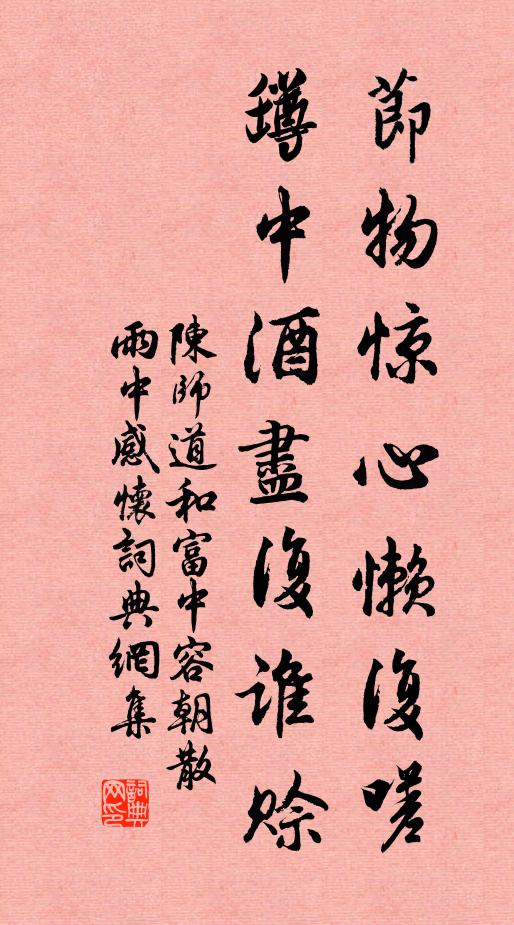 節物惊心懒復嗟
罇中酒盡復谁赊
陳師道和富中容朝散
雨中感懷詞典網集
詞典网印